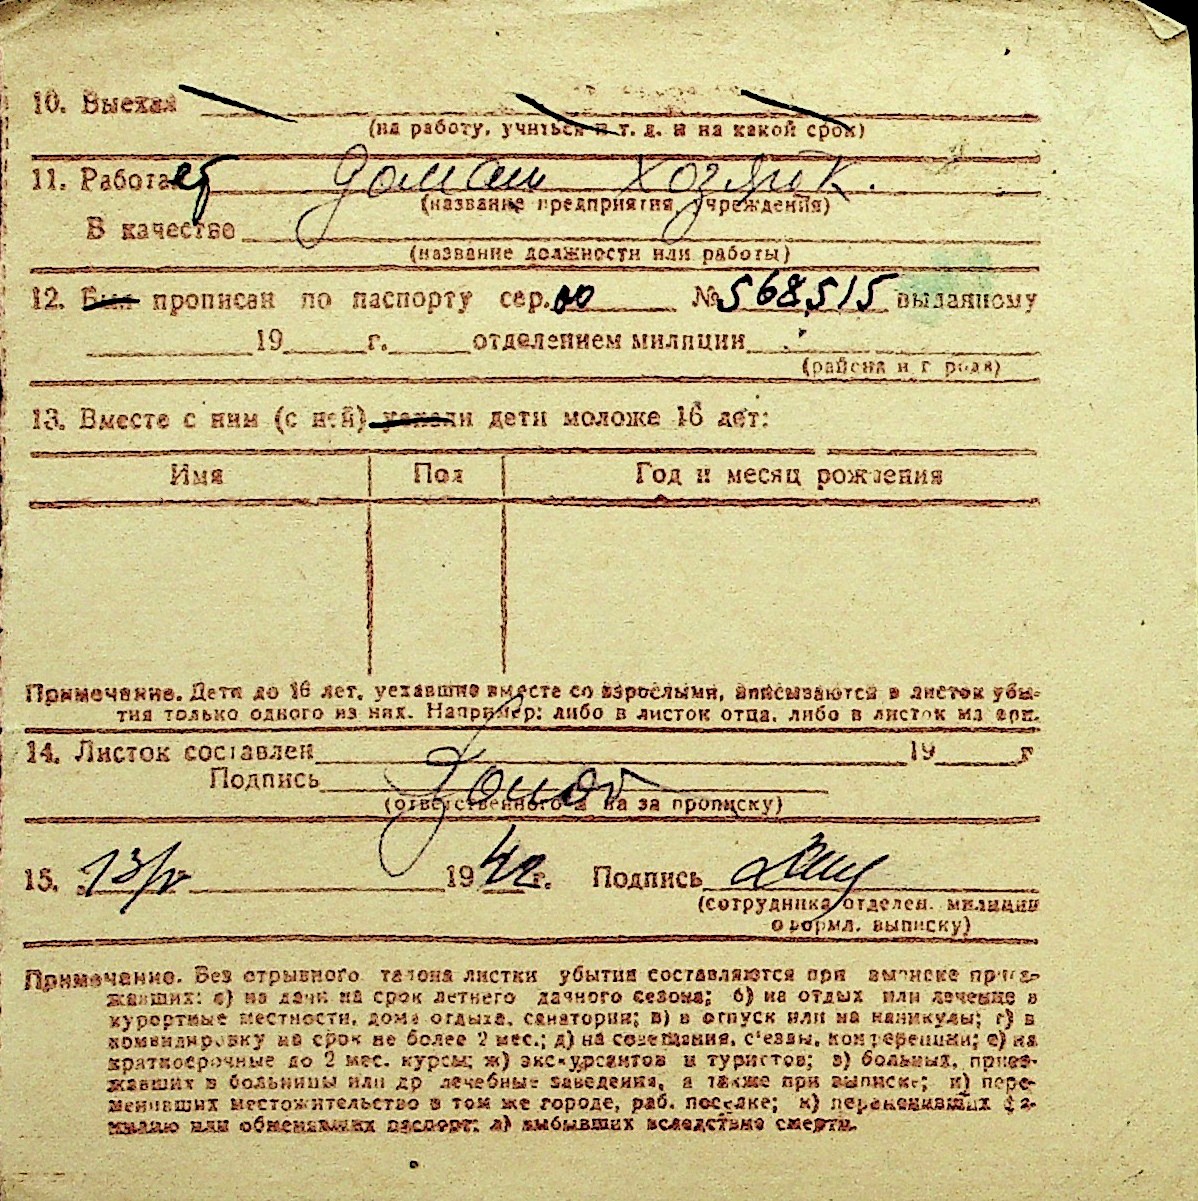 10. Выехал
(на работу, учиться и т. д. и на какой срок)
11. Работает домаш хозяйк.
(название предприятия, учреждения)
В качестве
(название должности или работы)
12. Был прописан по паспорту сер. № 568515 выданному
19 г. отделением милиции
(района и г рода)
13. Вместе с ним (с ней) уехали дети моложе 16 лет:
Имя Пол Год и месяц рождения
Примечание. Дети до 16 лет, уехавшие вместе со взрослыми, вписываются в листок убы-
тия только одного из них. Например: либо в листок отца, либо в листок матери.
14. Листок составлен 19 г
Подпись
(ответственного за прописку)
15. 13/V 1942 г. Подпись
(сотрудника отделен. милиции
оформл. выписку)
Примечание. Без отрывного талона листки убытия составляются при выписке приез-
жавших: а) на дачи на срок летнего дачного сезона; б) на отдых или лечение в
курортные местности, дома отдыха, санатории; в) в отпуск или на каникулы; г) в
командировку на срок не более 2 мес.; д) на совещания, с'езды, конференции; е) на
краткосрочные до 2 мес. курсы; ж) экскурсантов и туристов; з) больных, приез-
жавших в больницы или др лечебные заведения, а также при выписке; и) пере-
менивших местожительство в том же городе, раб. поселке; к) переменивших фа-
милию или обменявших паспорт; л) выбывших вследствие смерти.